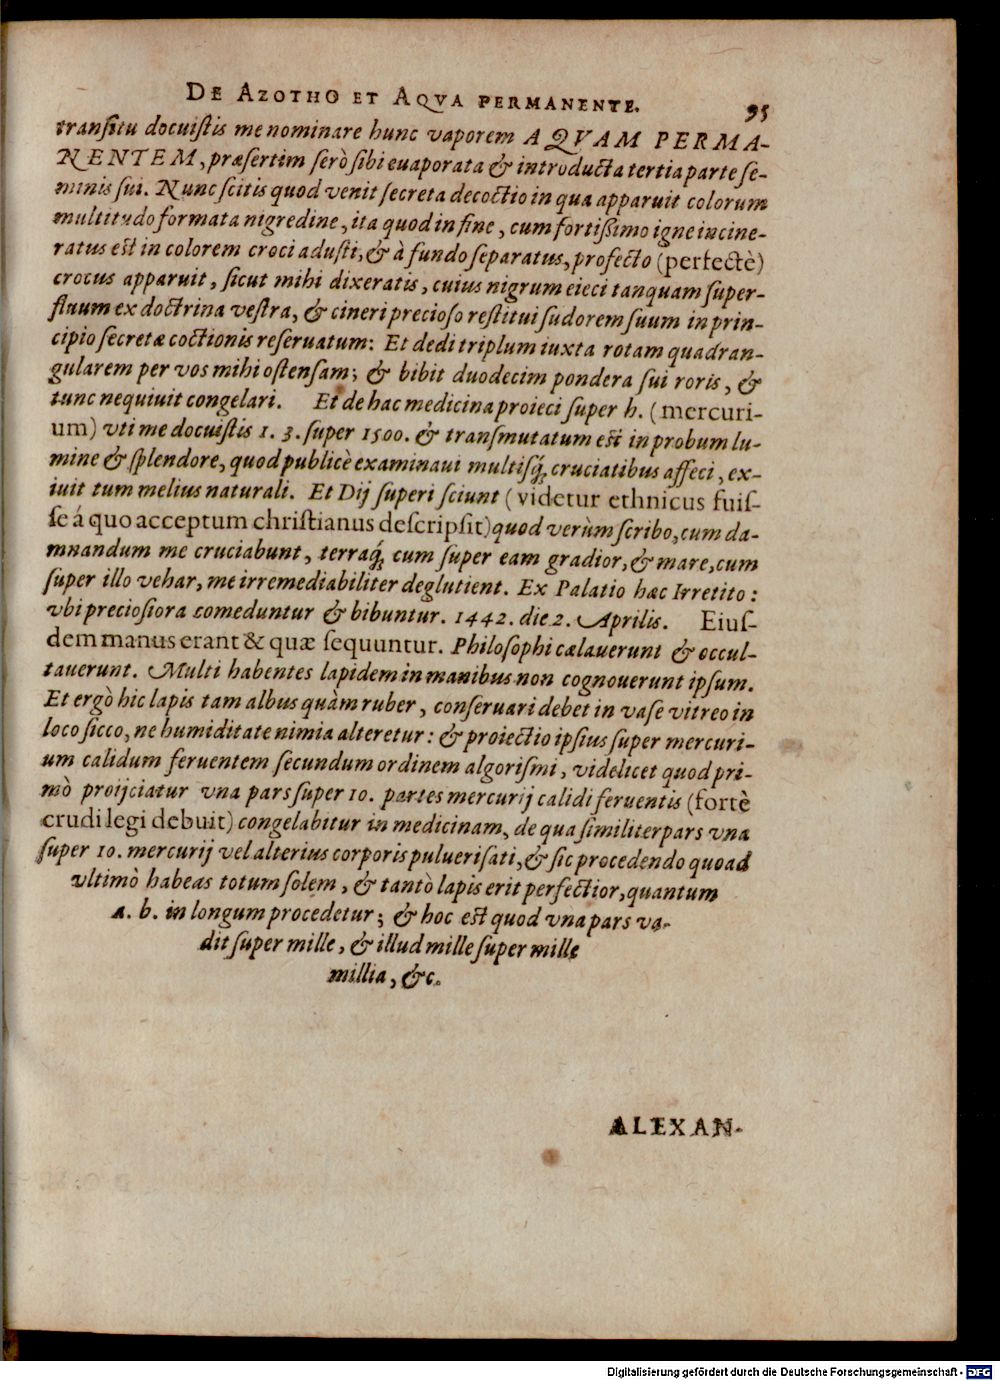 DE AZOTHO ET AQVA PERMANENTE. 95
tranſitu docuiſtis me nominare hunc vaporem AQVAM PERMA-
NENTEM, præſertim ſerò ſibi euaporata & introducta tertia parte ſe-
minis ſui. Nunc ſcitis quod venit ſecreta decoctio in qua apparuit colorum
multitudo formata nigredine, ita quod in fine, cum fortiſſimo igne incine-
ratus est in colorem croci aduſti, & à fundo ſeparatus, profecto (perfectè)
crocus apparuit, ſicut mihi dixeratis, cuius nigrum eieci tanquam ſuper-
fluum ex doctrina veſtra, & cineri precioſo reſtitui ſudorem ſuum in prin-
cipio ſecretæ coctionis reſeruatum: Et dedi triplum iuxta rotam quadran-
gularem per vos mihi oſtenſam; & bibit duodecim pondera ſui roris, &
tunc nequiuit congelari. Et de hac medicina proieci ſuper h. (mercuri-
um) vti me docuiſtis 1. 3. ſuper 1500. & tranſmutatum est in probum lu-
mine & ſplendore, quod publicè examinaui multiſq́; cruciatibus affeci, ex-
iuit tum melius naturali. Et Dij ſuperi ſciunt (videtur ethnicus fuiſ-
ſe á quo acceptum chriſtianus deſcripſit) quod verùm ſcribo, cum da-
mnandum me cruciabunt, terraq́; cum ſuper eam gradior, & mare, cum
ſuper illo vehar, me irremediabiliter deglutient. Ex Palatio hac Irretito:
vbi precioſiora comeduntur & bibuntur. 1442. die 2. Aprilis. Eiuſ-
dem manus erant & quæ ſequuntur. Philoſophi cælauerunt & occul-
tauerunt. Multi habentes lapidem in manibus non cognouerunt ipſum.
Et ergò hic lapis tam albus quàm ruber, conſeruari debet in vaſe vitreo in
loco ſicco, ne humiditate nimia alteretur: & proiectio ipſius ſuper mercuri-
um calidum feruentem ſecundum ordinem algoriſmi, videlicet quod pri-
mò proijciatur vna pars ſuper 10. partes mercurij calidi feruentis (fortè
crudi legi debuit) congelabitur in medicinam, de qua ſimiliter pars vna
ſuper 10. mercurij vel alterius corporis pulueriſati, & ſic procedendo quoad
vltimò habeas totum ſolem, & tantò lapis erit perfectior, quantum
a. b. in longum procedetur; & hoc est quod vna pars va-
dit ſuper mille, & illud mille ſuper mille
millia, &c.
ALEXAN-
Digitalisierung gefördert durch die Deutsche Forschungsgemeinschaft - DFG